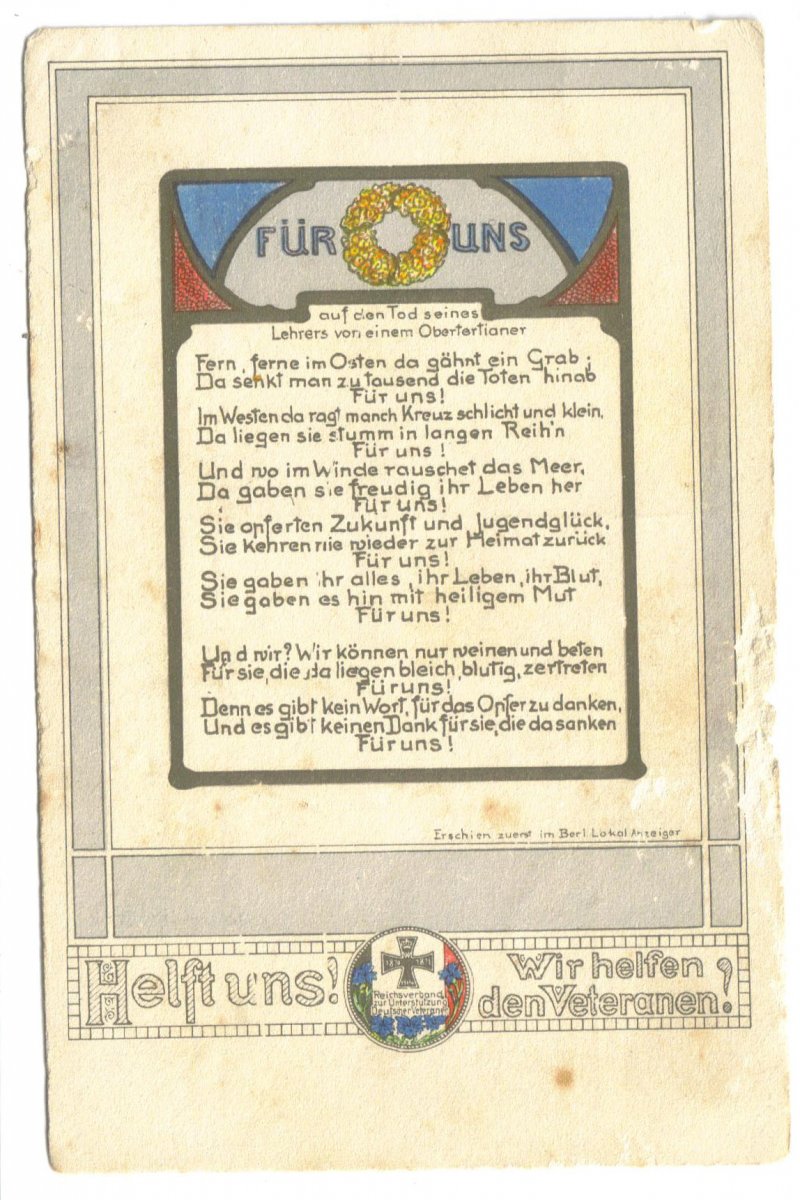 FÜR UNS
auf den Tod seines
Lehrers von einem Obertertianer
Fern, ferne im Osten da gähnt ein Grab;
Da senkt man zu tausend die Toten hinab
Für uns!
Im Westen da ragt manch Kreuz schlicht und klein,
Da liegen sie stumm in langen Reih'n
Für uns!
Und wo im Winde rauschet das Meer,
Da gaben sie freudig ihr Leben her
Für uns!
Sie opferten Zukunft und Jugendglück,
Sie kehren nie wieder zur Heimat zurück
Für uns!
Sie gaben ihr alles, ihr Leben, ihr Blut,
Sie gaben es hin mit heiligem Mut
Für uns!
Und wir? Wir können nur weinen und beten
Für sie, die da liegen bleich, blutig, zertreten
Für uns!
Denn es gibt kein Wort, für das Opfer zu danken,
Und es gibt keinen Dank für sie, die da sanken
Für uns!
Erschien zuerst im Berl. Lokal Anzeiger
Helft uns!
Reichsverband
zur Unterstützung
Deutscher Veteranen
Wir helfen
den Veteranen!